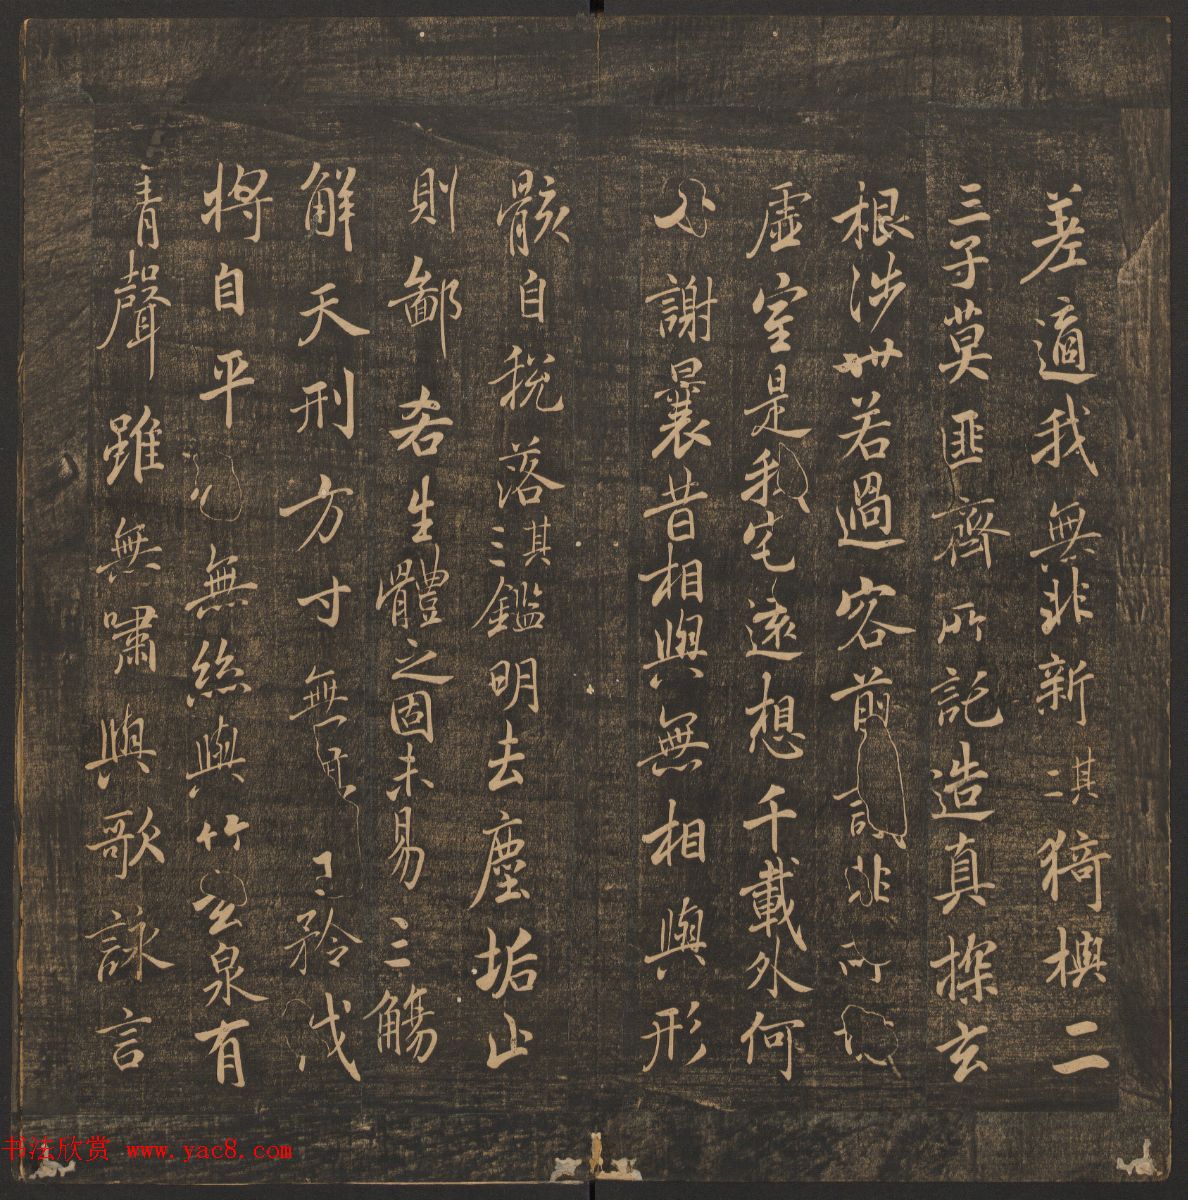 差適我無非新其二猗與二
三子莫匪齊所託造真探玄
根涉世若過客前言非所
虛室是我宅遠想千載外何
必謝曩昔相與無相與形
骸自脫落其三鑑明去塵垢止
則鄙吝生體之固未易三觴
解天刑方寸無矜伐
將自平無絲與竹玄泉有
清聲雖無嘯與歌詠言
书法欣赏 www.yac8.com